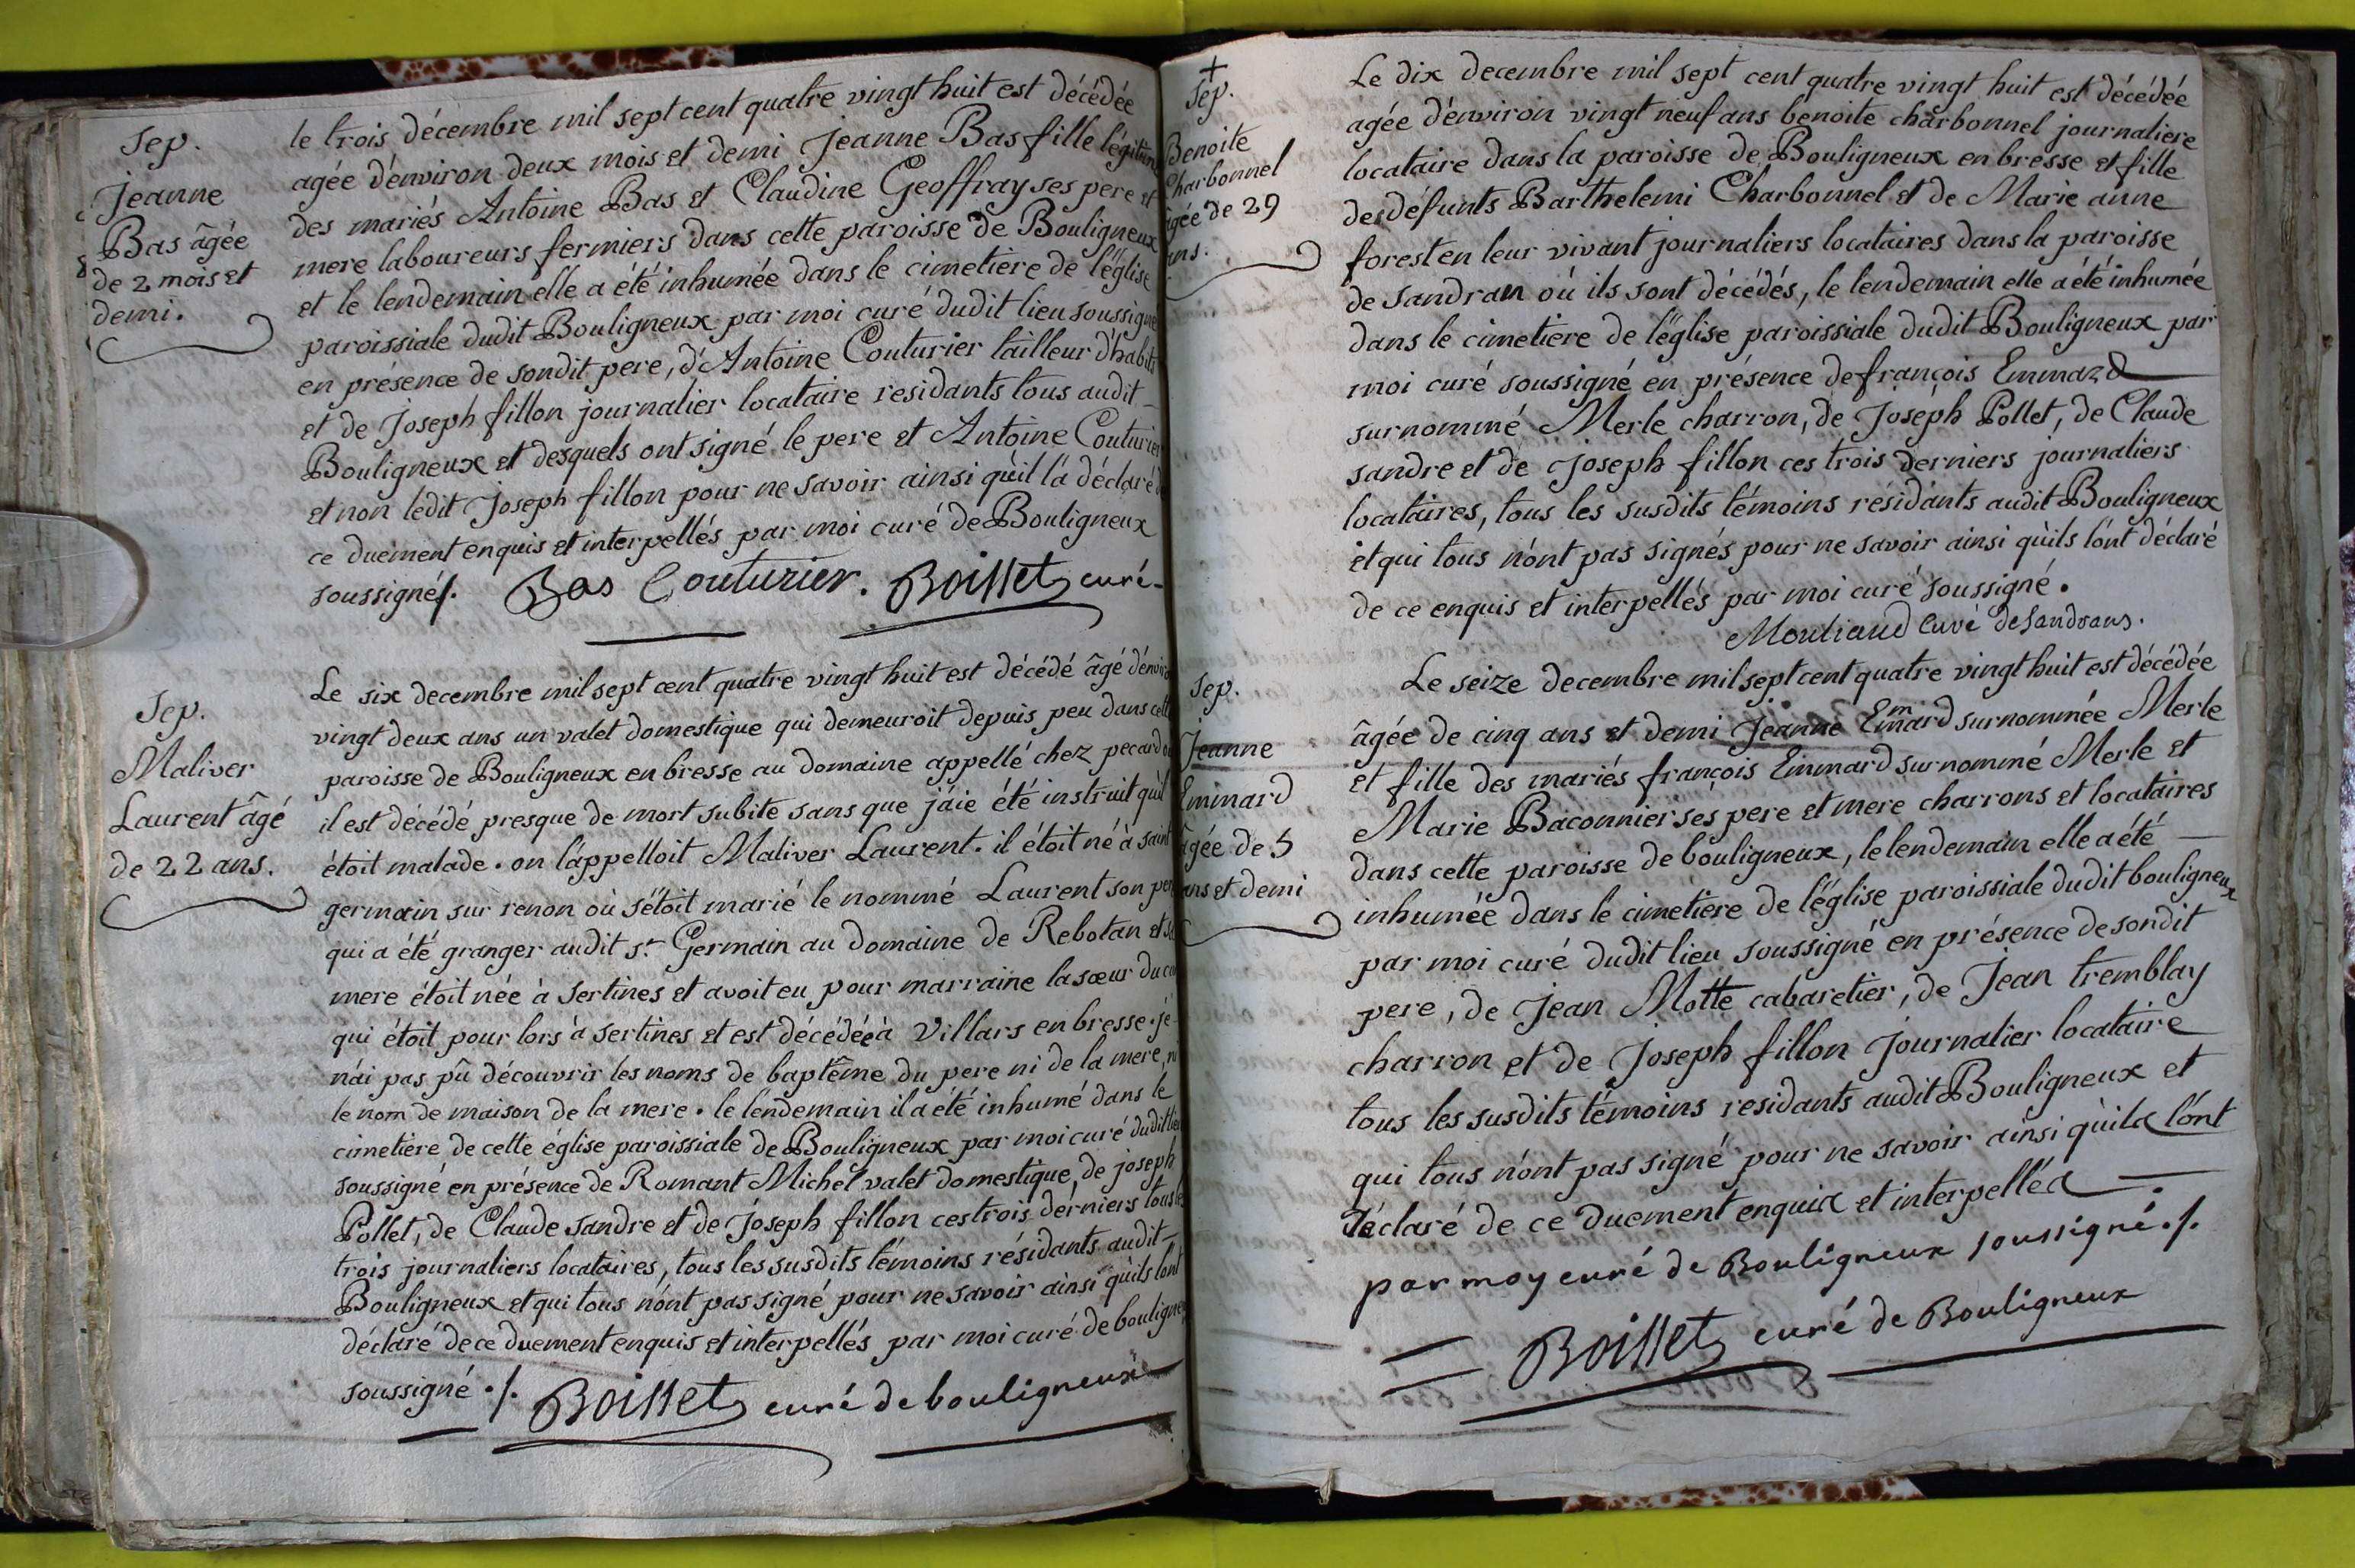 Sep.
Jeanne
Bas âgée
de 2 mois et
demi.
le trois décembre mil sept cent quatre vingt huit est décédée
agée d'environ deux mois et demi Jeanne Bas fille légitim
des mariés Antoine Bas et Claudine Geoffray ses pere et
mere laboureurs fermiers dans cette paroisse de Bouligneux
et le lendemain elle a été inhumée dans le cimetiere de l'église
paroissiale dudit Bouligneux par moi curé dudit lieu soussigné
en présence de sondit pere, d'Antoine Couturier tailleur d'habits
et de Joseph fillon journalier locataire residants tous audit
Bouligneux et desquels ont signé le pere et Antoine Couturier
et non ledit Joseph fillon pour ne savoir ainsi qu'il l'a déclaré
ce duement enquis et interpellés par moi curé de Bouligneux
soussigné/. Bas Couturier. Boisset curé
Sep.
Maliver
Laurent âgé
de 22 ans.
Le six decembre mil sept cent quatre vingt huit est décédé âgé d'envir
vingt deux ans un valet domestique qui demeuroit depuis peu dans cett
paroisse de Bouligneux en bresse au domaine appellé chez pecard ou
il est décédé presque de mort subite sans que j'aie été instruit qu'il
étoit malade. on l'appelloit Maliver Laurent. il étoit né à saint
germain sur renon où s'étoit marié le nommé Laurent son per
qui a été granger audit St. Germain au domaine de Rebotan et sa
mere étoit née à Sertines et avoit eu pour marraine la sœur du cu
qui étoit pour lors à Sertines et est décédée à Villars en bresse. je
n'ai pas pû découvrir les noms de baptême du pere ni de la mere, ni
le nom de maison de la mere. le lendemain il a été inhumé dans le
cimetiere de cette église paroissiale de Bouligneux par moi curé dudit lieu
soussigné en présence de Romant Michel valet domestique, de joseph
Pollet, de Claude sandre et de Joseph fillon ces trois derniers tous le
trois journaliers locataires, tous les susdits témoins résidants audit
Bouligneux et qui tous n'ont pas signé pour ne savoir ainsi qu'ils l'ont
déclaré de ce duement enquis et interpellés par moi curé de bouligneu
soussigné ./. Boisset curé de bouligneux
+
Sep.
Benoite
Charbonnel
âgée de 29
ans.
Le dix decembre mil sept cent quatre vingt huit est décédée
agée d'environ vingt neuf ans benoite charbonnel journaliere
locataire dans la paroisse de Bouligneux en bresse et fille
des défunts Barthelemi Charbonnel et de Marie anne
forest en leur vivant journaliers locataires dans la paroisse
de Sandran où ils sont décédés, le lendemain elle a été inhumée
dans le cimetiere de l'église paroissiale dudit Bouligneux par
moi curé soussigné en présence de françois Emmard
surnommé Merle charron, de Joseph Pollet, de Claude
sandre et de Joseph fillon ces trois derniers journaliers
locataires, tous les susdits témoins résidants audit Bouligneux
et qui tous n'ont pas signés pour ne savoir ainsi qu'ils l'ont déclaré
de ce enquis et interpellés par moi curé soussigné.
Mouliaud Curé de Sandrans.
Sep.
Jeanne
Emmard
âgée de 5
ans et demi
Le seize decembre mil sept cent quatre vingt huit est décédée
âgée de cinq ans et demi Jeanne Emmard surnommée Merle
et fille des mariés françois Emmard surnommé Merle et
Marie Baconnier ses pere et mere charrons et locataires
dans cette paroisse de bouligneux, le lendemain elle a été
inhumée dans le cimetiere de l'église paroissiale dudit bouligneux
par moi curé dudit lieu soussigné en présence de sondit
pere, de Jean Motte cabaretier, de Jean tremblay
charron et de Joseph fillon journalier locataire
tous les susdits témoins residants audit Bouligneux et
qui tous n'ont pas signé pour ne savoir ainsi qu'ils l'ont
déclaré de ce duement enquis et interpellés
par moy curé de Bouligneux soussigné ./.
Boisset curé de Bouligneux